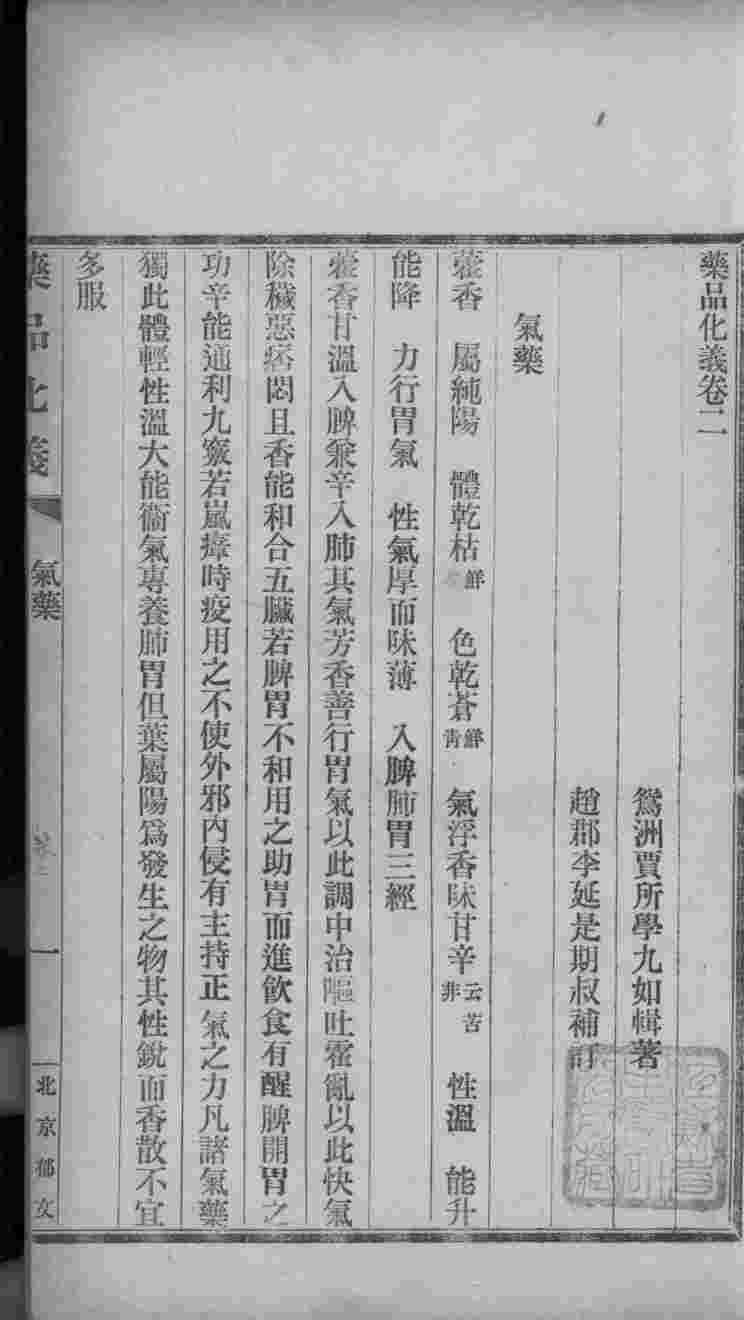 藥品化義卷二
鴛洲賈所學九如輯著
趙郡李延是期叔補訂
氣藥
藿香　屬純陽　體乾枯鮮　色乾蒼鮮青　氣浮香味甘辛云苦非　性溫　能升
能降　力行胃氣　性氣厚而味薄　入脾肺胃三經
藿香甘溫入脾兼辛入肺其氣芳香善行胃氣以此調中治嘔吐霍亂以此快氣
除穢惡痞悶且香能和合五臟若脾胃不和用之助胃而進飲食有醒脾開胃之
功辛能通利九竅若嵐瘴時疫用之不使外邪內侵有主持正氣之力凡諸氣藥
獨此體輕性溫大能衞氣專養肺胃但葉屬陽爲發生之物其性銳而香散不宜
多服
藥品化義
氣藥
一
北京郁文